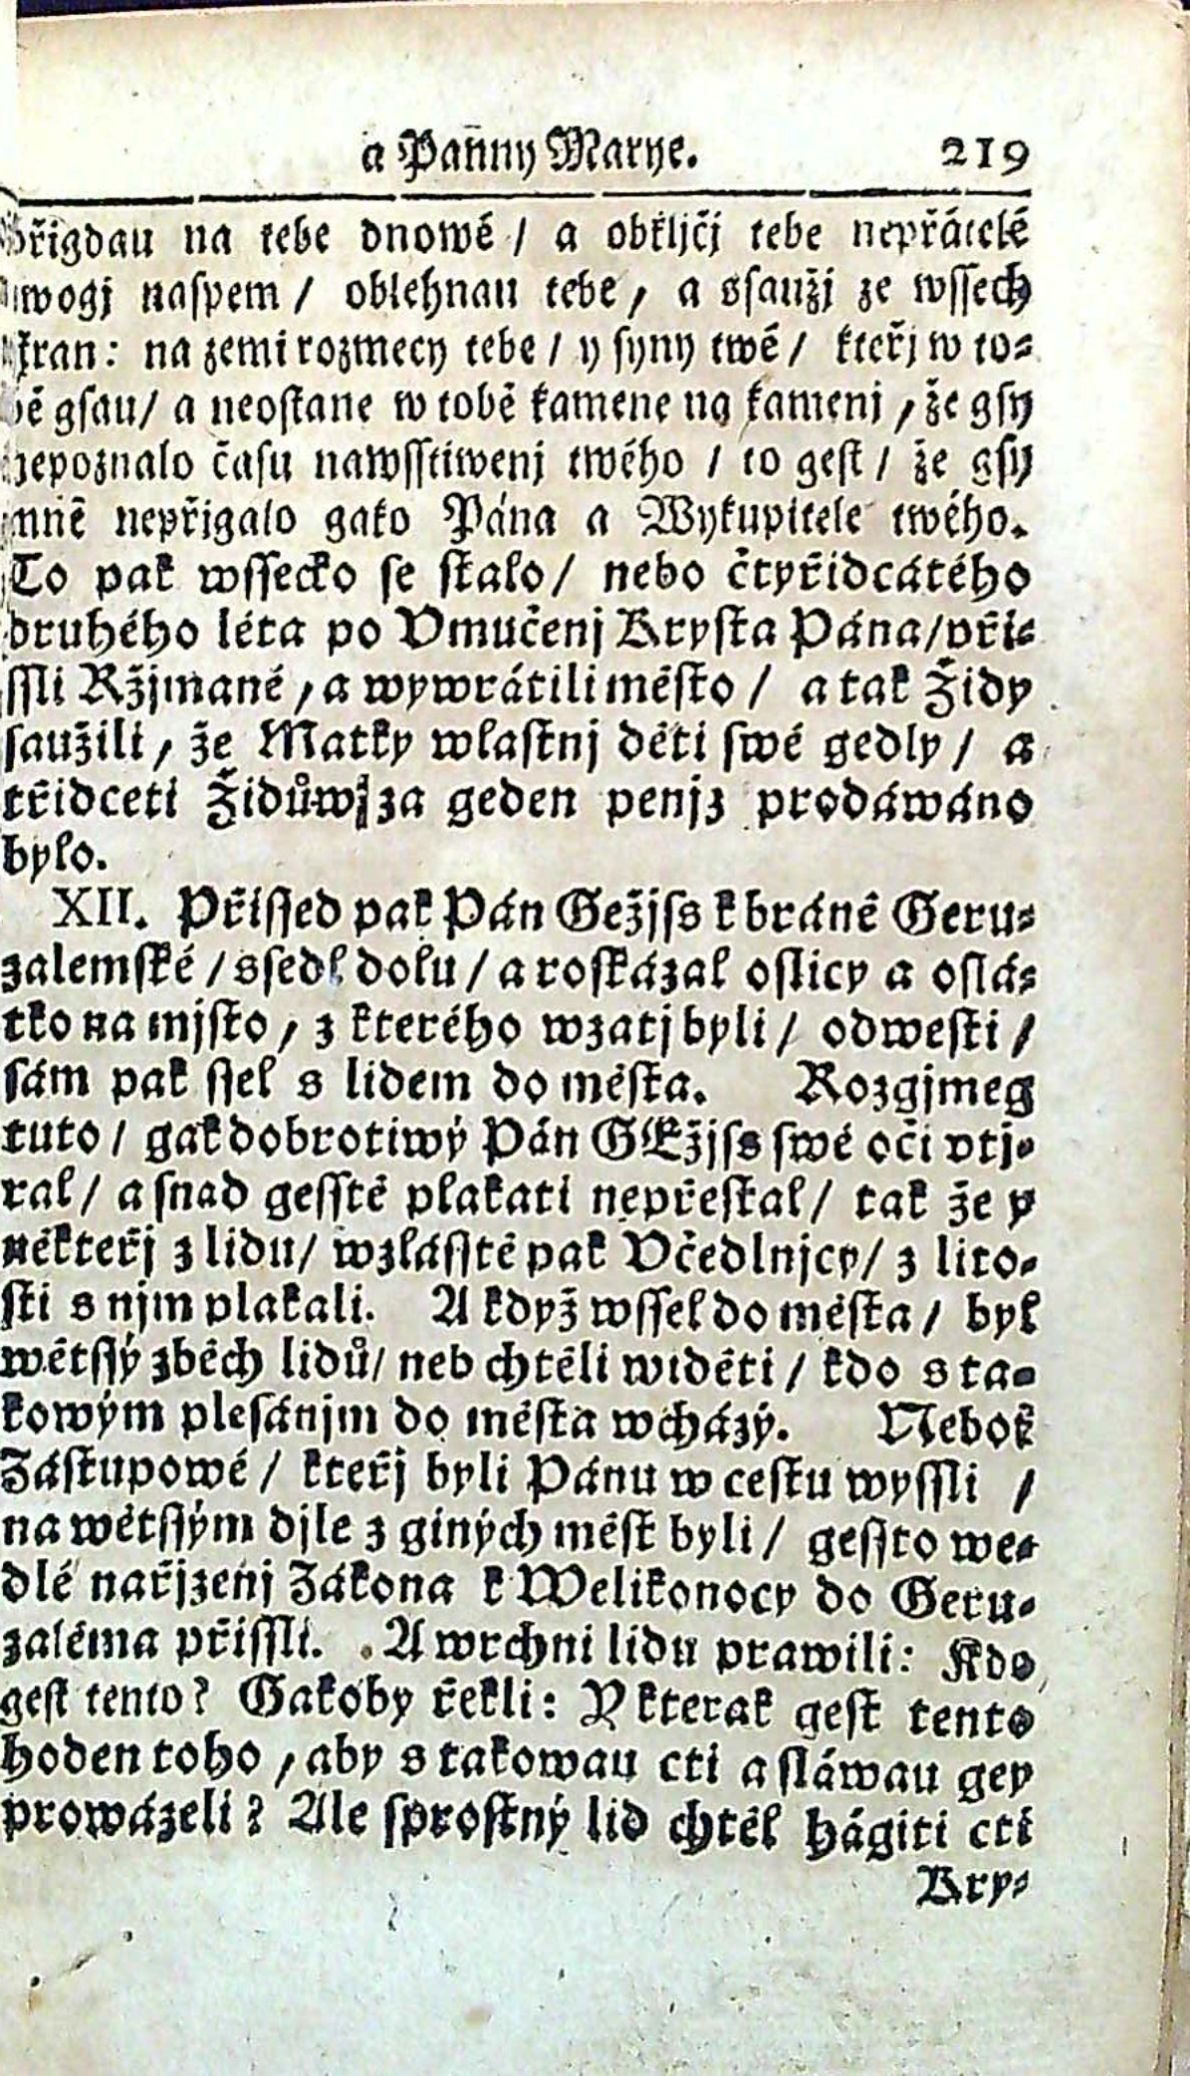 a Pan̄ny Marye. 219
přigdau na tebe dnowé / a obkljčj tebe nepřátelé
twogj naspem / oblehnau tebe, a ssaužj ze wssech
stran: na zemi rozmecy tebe / y syny twé / kteřj w to-
bě gsau / a neostane w tobě kamene na kameni, že gsy
nepoznalo času nawsstiwenj twého / to gest / že gsy
mně nepřigalo gako Pána a Wykupitele twého.
To pak wssecko se stalo / nebo čtyřidcátého
druhého léta po Vmučenj Krysta Pána / při-
ssli Ržjmané, a wywrátili město / a tak Židy
saužili, že Matky wlastnj děti swé gedly / a
třidceti Židůw za geden penjz prodáwáno
bylo.
XII. Přissed pak Pán Gežjss k bráně Geru-
zalemské / ssedl dolu / a roskázal oslicy a oslá-
tko na mjsto, z kterého wzatj byli / odwesti /
sám pak ssel s lidem do města. Rozgjmeg
tuto / gak dobrotiwý Pán GEžjss swé oči vtj-
ral / a snad gesstě plakati nepřestal / tak že y
někteřj z lidu / wzlásstě pak Včedlnjcy / z lito-
sti s njm plakali. A když wssel do města / byl
wětssý zběch lidů / neb chtěli widěti / kdo s ta-
kowým plesánjm do města wcházý. Neboť
Zástupowé / kteřj byli Pánu w cestu wyssli /
na wětssým djle z giných měst byli / gessto we-
dlé nařjzenj Zákona k Welikonocy do Geru-
zaléma přissli. A wrchni lidu prawili: Kdo
gest tento? Gakoby řekli: Y kterak gest tento
hoden toho, aby s takowau cti a sláwau gey
prowázeli? Ale sprostný lid chtěl hágiti cti
Kry-